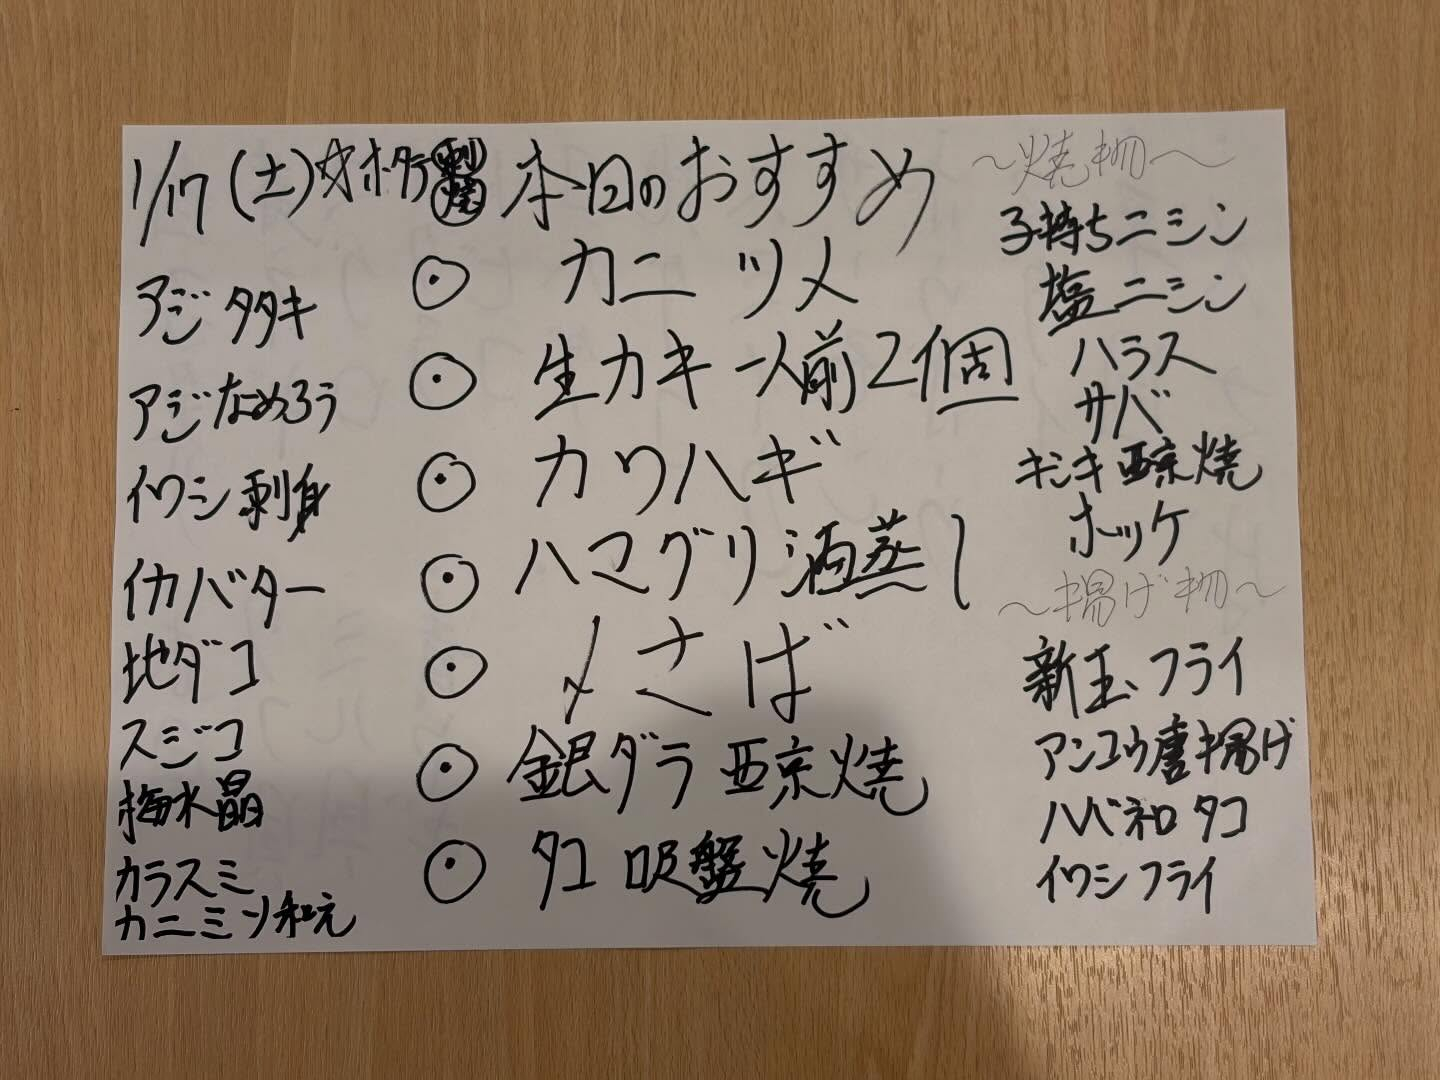 1/17(土)☆ホタテ 刺 焼
本日のおすすめ
アジ タタキ
アジなめろう
イワシ刺身
イカバター
地ダコ
スジコ
梅水晶
カラスミ
カニミソ和え
◎ カニ ツメ
◎ 生カキ 一人前2個
◎ カワハギ
◎ ハマグリ酒蒸し
◎ 〆さば
◎ 銀ダラ 西京焼
◎ タコ 吸盤焼
〜焼物〜
子持ちニシン
塩ニシン
ハラス
サバ
キンキ西京焼
ホッケ
〜揚げ物〜
新玉フライ
アンコウ唐揚げ
タコ
イワシフライ